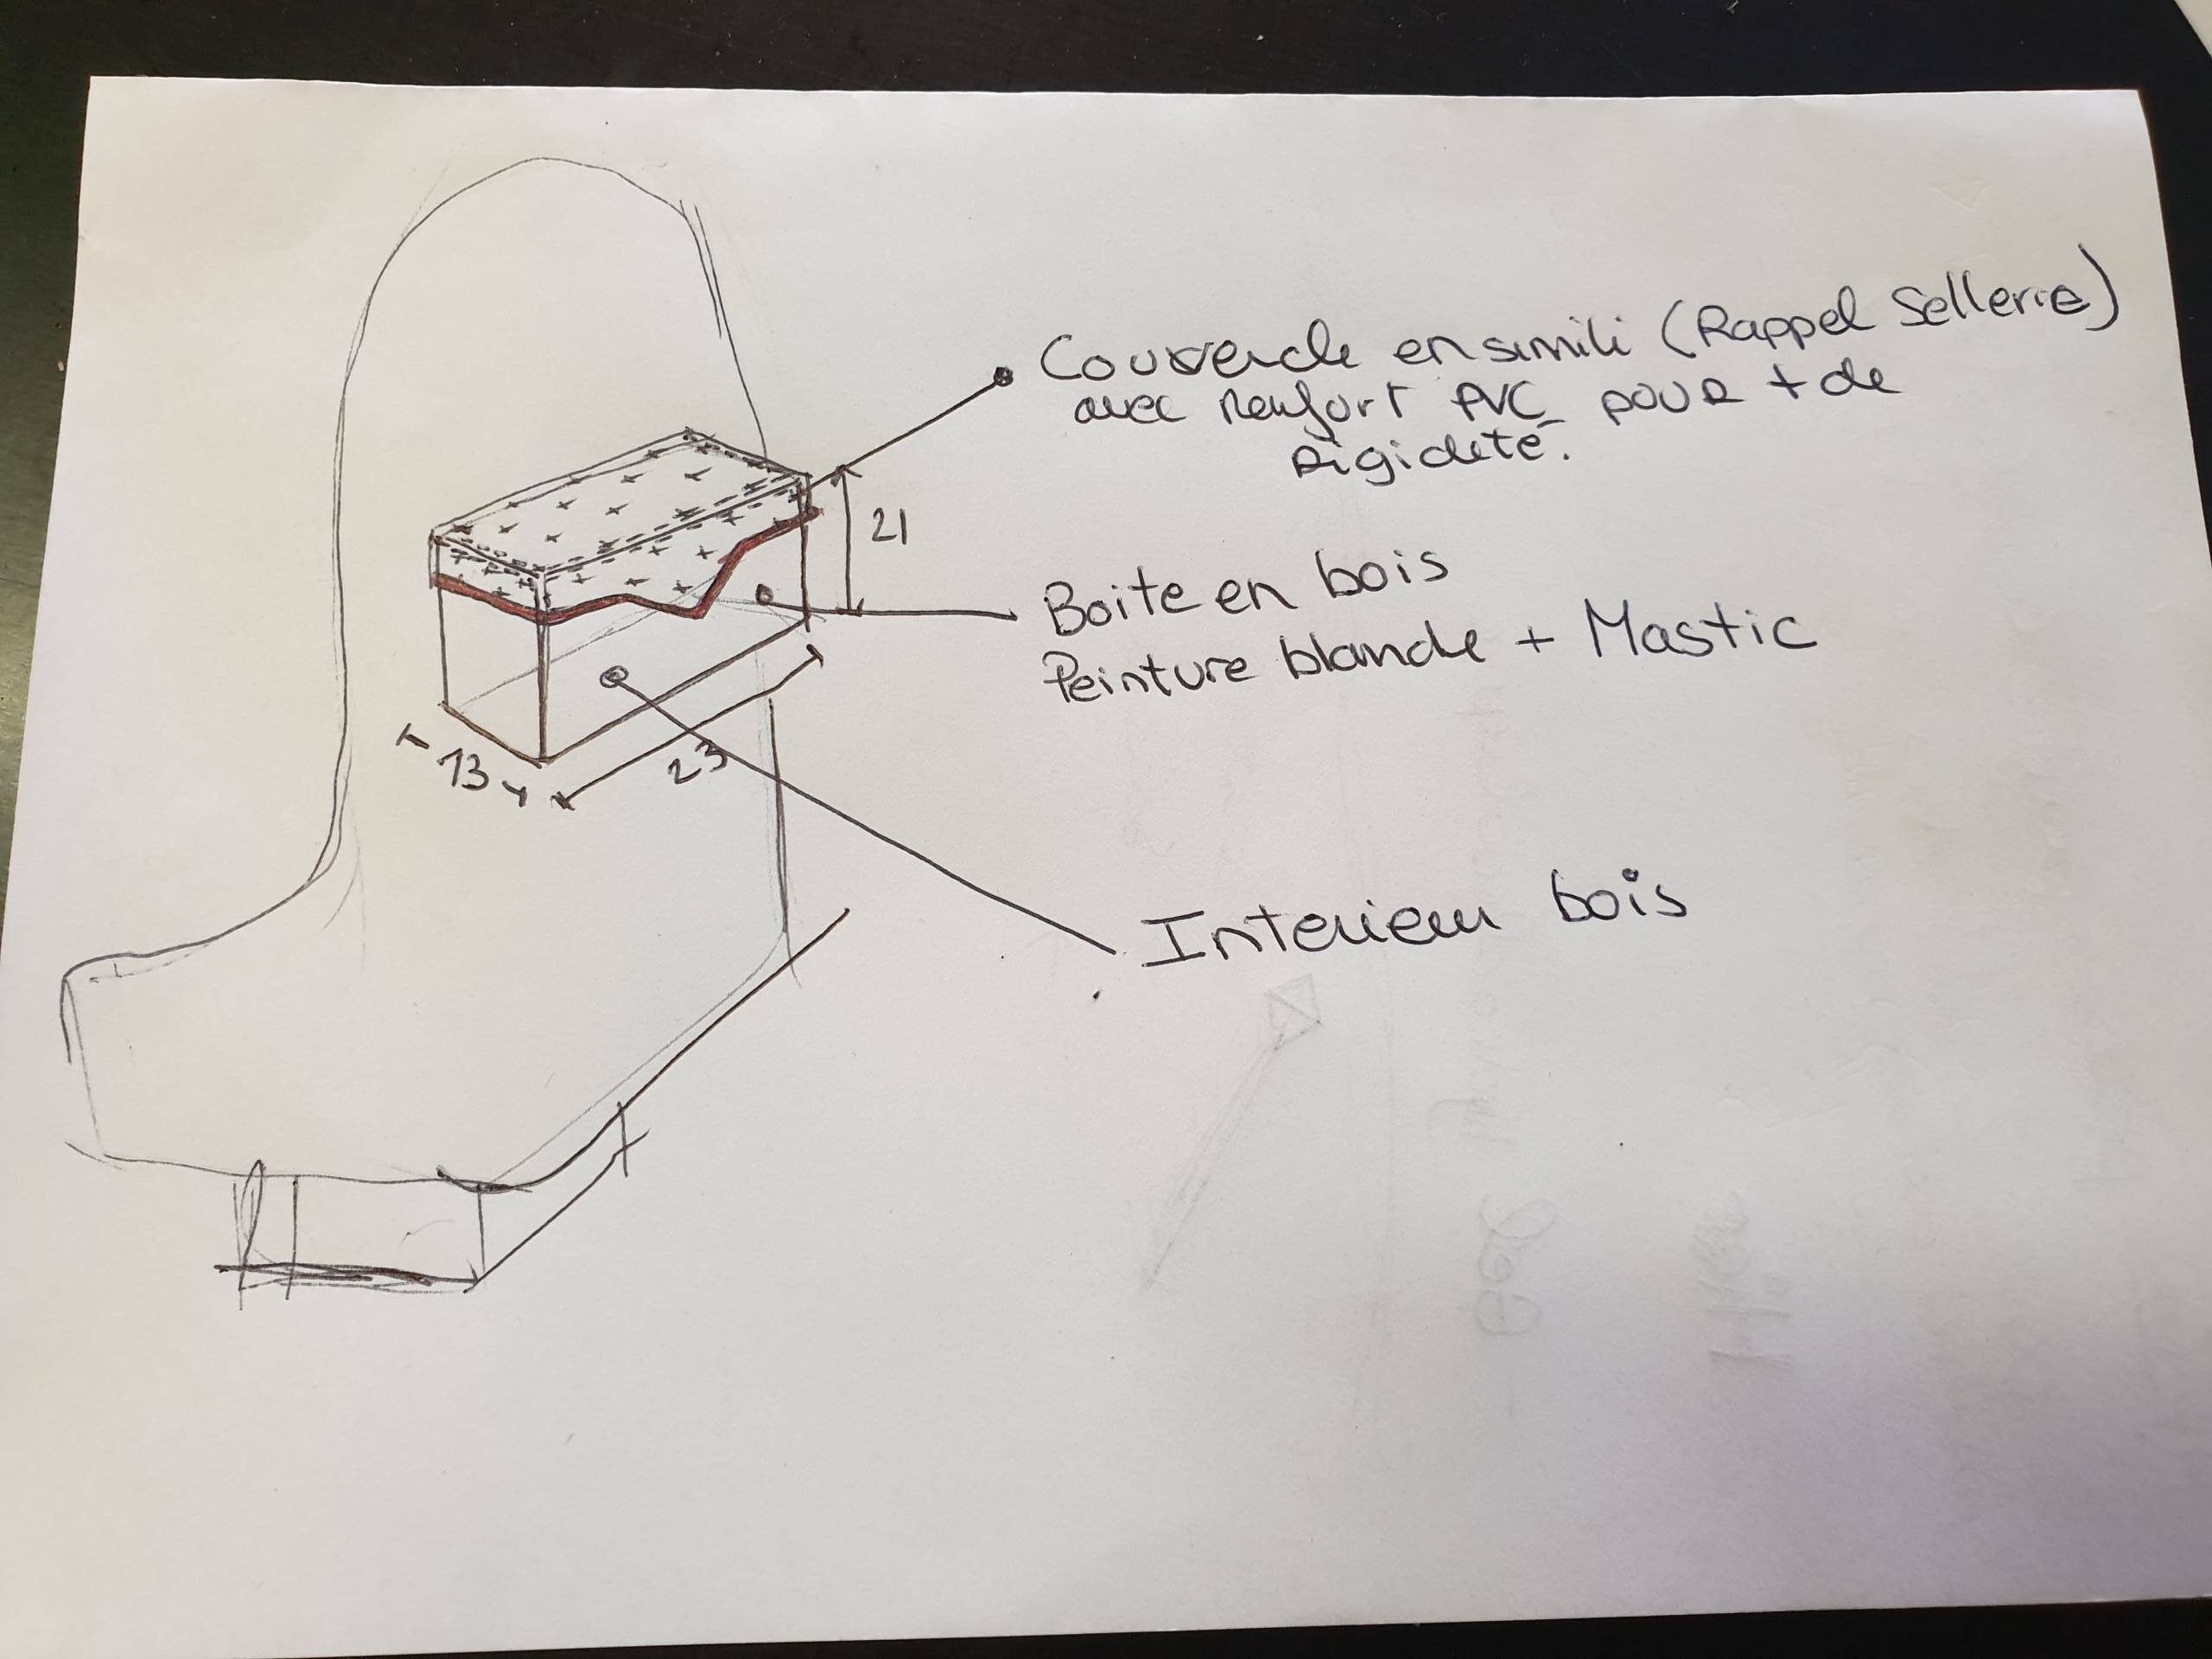 Couvercle en simili (Rappel Sellerie)
avec renfort PVC pour + de
rigidité.
21
Boite en bois
Peinture blanche + Mastic
13
23
Interieur bois